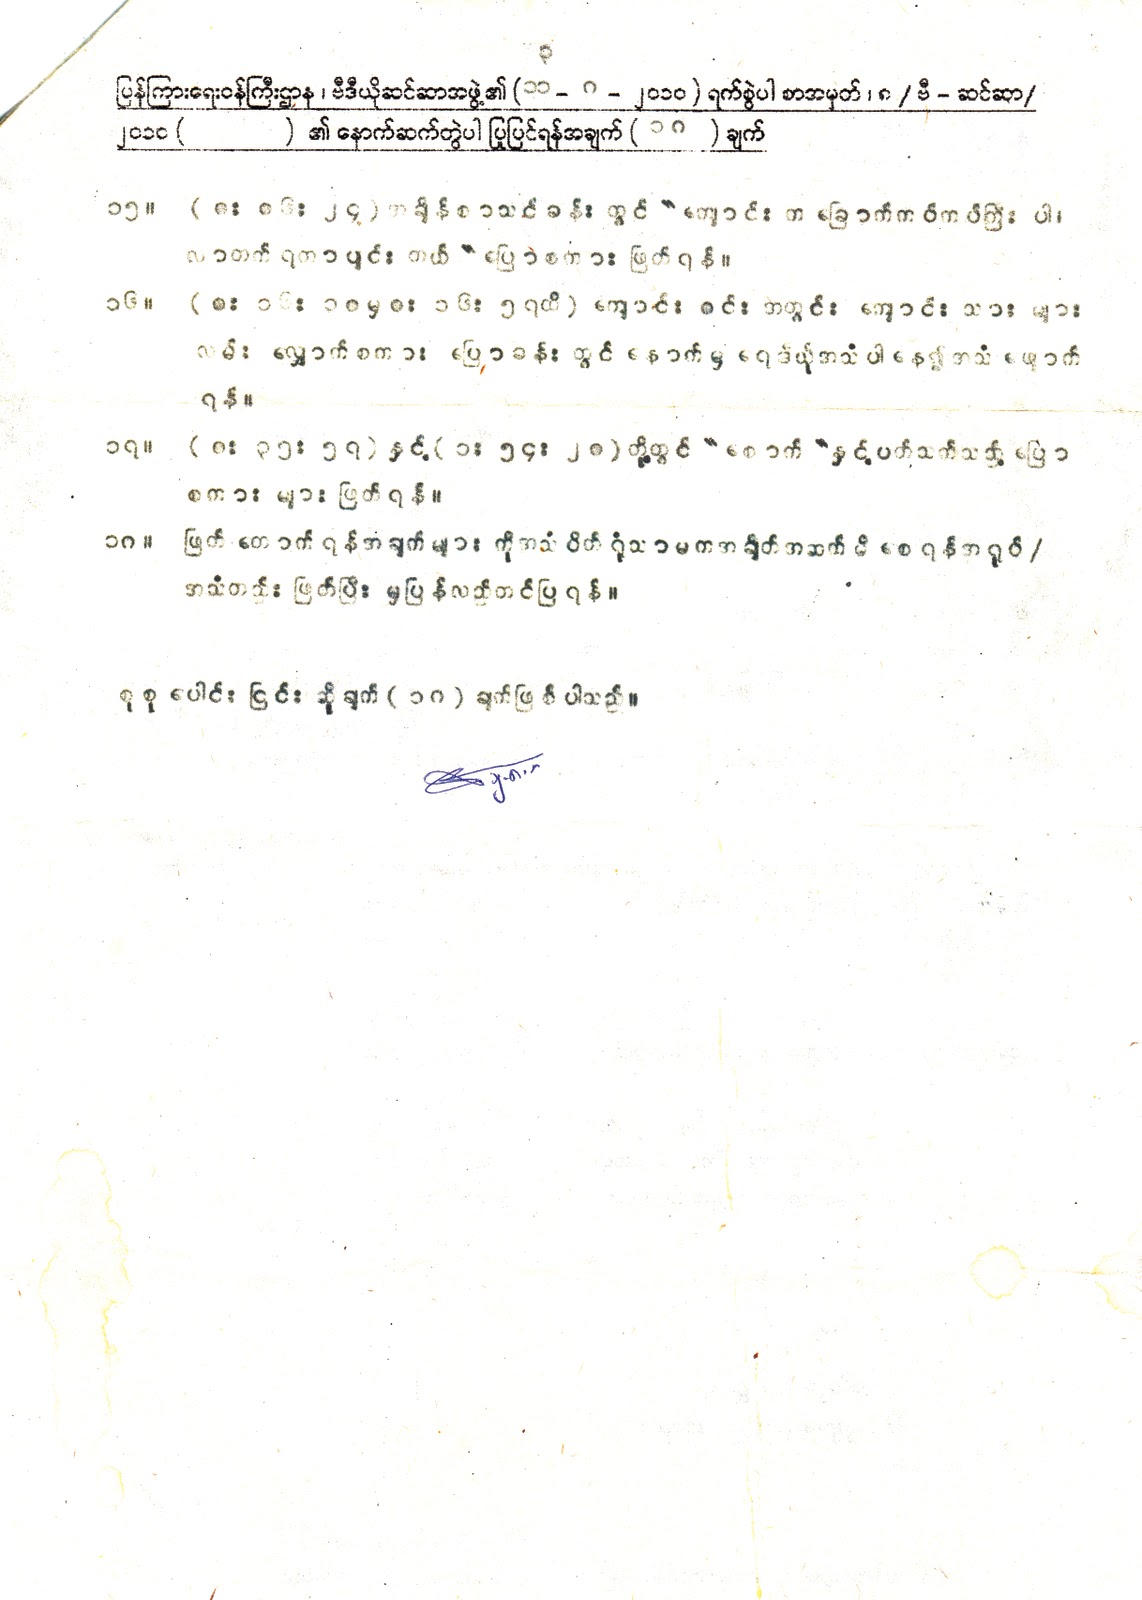 ၃
ပြန်ကြားရေးဝန်ကြီးဌာန ၊ ဗီဒီယိုဆင်ဆာအဖွဲ့၏ (၁၁ – ၈ – ၂၀၁၀ ) ရက်စွဲပါ စာအမှတ် ၊ ၈ / ဗီ – ဆင်ဆာ/
၂၀၁၀ ( ) ၏ နောက်ဆက်တွဲပါ ပြုပြင်ရန်အချက် ( ၁၈ ) ချက်
၁၅။ အချိန်စာသင်ခန်းတွင် " ကျောင်းက ခြောက်ကပ်ကပ်ကြီး ပါ၊
လာတက်ရတာပျင်းတယ် " ပြောစကား ဖြတ်ရန်။
၁၆။ ကျောင်းဝင်းအတွင်း ကျောင်းသားများ
လမ်းလျှောက်စကားပြောခန်းတွင် နောက်မှ ရေဒီယိုအသံပါနေ၍အသံဖျောက်
ရန်။
၁၇။ (၈း ၃၅း ၅၇) နှင့် (၁း ၅၄း ၂၈) တို့တွင် " စောက် " နှင့်ပတ်သက်သည့် ပြော
စကားများ ဖြတ်ရန်။
၁၈။ ဖြတ်တောက်ရန်အချက်များကိုအသံပိတ်ရုံသာမကအချိတ်အဆက်မိစေရန်အရုပ်/
အသံတည်းဖြတ်ပြီးမှပြန်လည်တင်ပြရန်။
စုစုပေါင်းငြင်းဆိုချက် ( ၁၈ ) ချက်ဖြစ်ပါသည်။